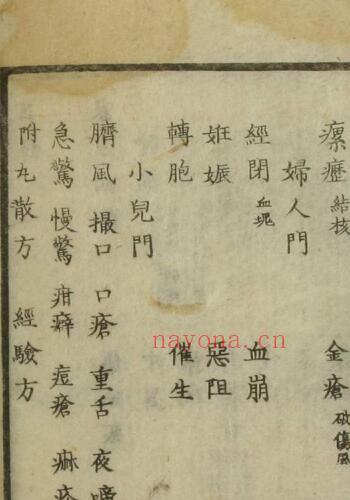 瘰癧 結核 金瘡 破傷風
婦人門
經閉 血塊 血崩
姙娠 惡阻
轉胞 催生
小兒門
臍風 撮口 口瘡 重舌 夜啼
急驚 慢驚 疳癖 痘瘡 痳疹
附丸散方 經驗方
nayona.cn